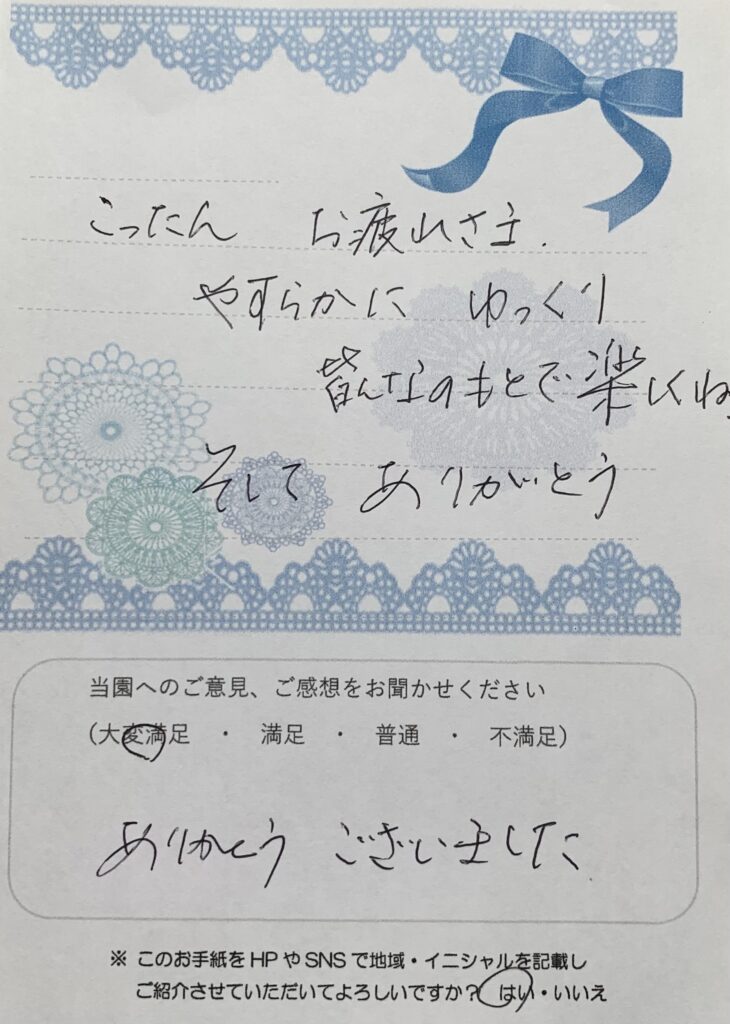 こったん お疲れさま.
やすらかに ゆっくり
皆んなのもとで楽しくね
そして ありがとう
当園へのご意見、ご感想をお聞かせください
(大変満足 ・ 満足 ・ 普通 ・ 不満足)
ありがとう ございました
※ このお手紙をHPやSNSで地域・イニシャルを記載し
ご紹介させていただいてよろしいですか? はい・いいえ